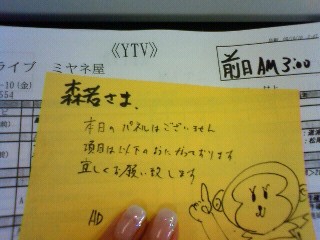 《YTV》
前日AM 3:00
ライブ ミヤネ屋
-10(金)
554
森若さま、
本日の パネルは ございません
項目は以下のおたがっております
宜しくお願い致します
AD